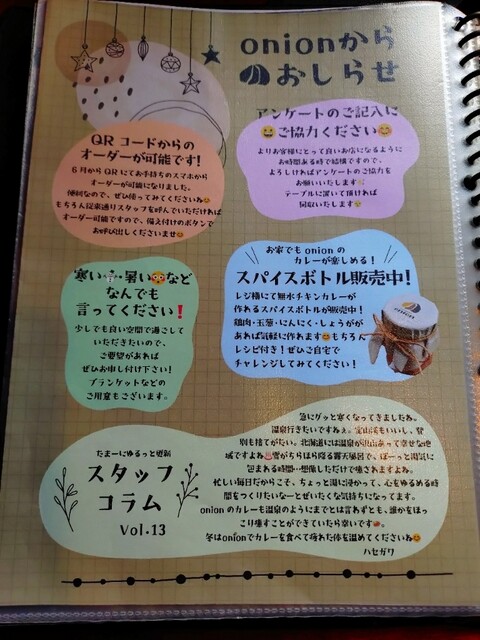 onionから
おしらせ
QRコードからの
オーダーが可能です!
6月からQRにてお手持ちのスマホから
オーダーが可能になりました。
便利なので、ぜひ使ってみてくださいね😊
もちろん従来通りスタッフを呼んでいただければ
オーダー可能ですので、備え付けのボタンで
お呼び出しくださいませ😊
アンケートのご記入に
😀ご協力ください😊
よりお客様にとって良いお店になるように
お時間ある時で結構ですので、
よろしければアンケートのご協力を
お願いいたします
テーブルに置いて頂ければ
回収いたします
寒い⛄暑い🥵など
なんでも
言ってください❗
少しでも良い空間で過ごして
いただきたいので、
ご要望があれば
ぜひお申し付け下さい!
ブランケットなどの
ご用意もございます。
お家でもonionの
カレーが楽しめる!
スパイスボトル販売中!
レジ横にて無水チキンカレーが
作れるスパイスボトルが販売中!
鶏肉・玉葱・にんにく・しょうがが
あれば気軽に作れます😊もちろん
レシピ付き!ぜひご自宅で
チャレンジしてみてください!
たまーにゆるっと更新
スタッフ
コラム
Vol.13
急にグッと寒くなってきましたね。
温泉行きたいですねぇ。定山渓もいいし、登
別も捨てがたい。北海道には温泉が沢山あって幸せな地
域ですよね♨雪がちらほら降る露天風呂で、ぼーっと湯気に
包まれる時間…想像しただけで癒されますよね。
忙しい毎日だからこそ、ちょっと湯に浸かって、心をゆるめる時
間をつくりたいなーとぜいたくな気持ちになってます。
onionのカレーも温泉のようにまでとは言わずとも、誰かをほっ
こり癒すことができていたら幸いです
冬はonionでカレーを食べて疲れた体を温めてくださいね😊
ハセガワ